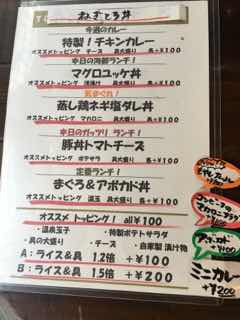 ねぎとろ丼
今週のカレー
特製!チキンカレー
オススメトッピング チーズ 具大盛り 各+¥100
本日の海鮮ランチ!
マグロユッケ丼
オススメトッピング 具大盛り 各+¥100
気まぐれ!
蒸し鶏ネギ塩ダレ丼
オススメトッピング マカロニ 具大盛り 各+¥100
本日のガッツリ ランチ!
豚丼トマトチーズ
オススメトッピング ポテサラ 具大盛り 各+¥100
定番ランチ!
まぐろ&アボカド丼
オススメトッピング 温玉 具大盛り 各+¥100
オススメ トッピング! all¥100
・温泉玉子 ・特製ポテトサラダ
・具の大盛り ・チーズ ・自家製 漬け物
A:ライス&具 1.2倍 +¥100
B:ライス&具 1.5倍 +¥200
ミニカレー
+¥200